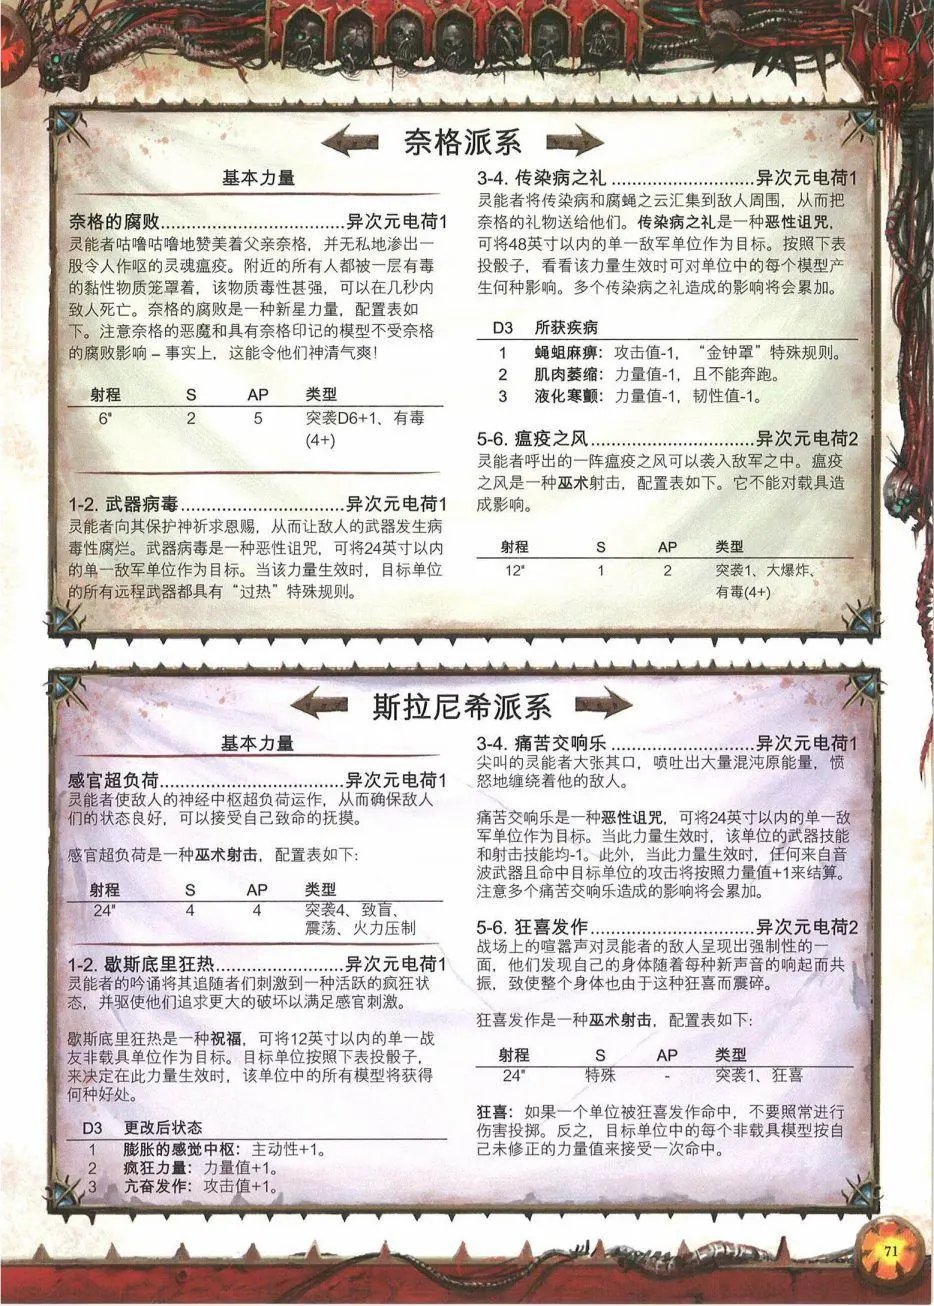 奈格派系
基本力量
奈格的腐败..............................异次元电荷1
灵能者咕噜咕噜地赞美着父亲奈格，并无私地渗出一
股令人作呕的灵魂瘟疫。附近的所有人都被一层有毒
的黏性物质笼罩着，该物质毒性甚强，可以在几秒内
致人死亡。奈格的腐败是一种新星力量，配置表如
下。注意奈格的恶魔和具有奈格印记的模型不受奈格
的腐败影响 – 事实上，这能令他们神清气爽！
射程 S AP 类型
6" 2 5 突袭D6+1、有毒
(4+)
1-2. 武器病毒..............................异次元电荷1
灵能者向其保护神祈求恩赐，从而让敌人的武器发生病
毒性腐烂。武器病毒是一种恶性诅咒，可将24英寸以内
的单一敌军单位作为目标。当该力量生效时，目标单位
的所有远程武器都具有“过热”特殊规则。
3-4. 传染病之礼..........................异次元电荷1
灵能者将传染病和腐蝇之云汇集到敌人周围，从而把
奈格的礼物送给他们。传染病之礼是一种恶性诅咒，
可将48英寸以内的单一敌军单位作为目标。按照下表
投骰子，看看该力量生效时可对单位中的每个模型产
生何种影响。多个传染病之礼造成的影响将会累加。
D3 所获疾病
1 蝇蛆麻痹：攻击值-1，“金钟罩”特殊规则。
2 肌肉萎缩：力量值-1，且不能奔跑。
3 液化寒颤：力量值-1，韧性值-1。
5-6. 瘟疫之风..............................异次元电荷2
灵能者呼出的一阵瘟疫之风可以袭入敌军之中。瘟疫
之风是一种巫术射击，配置表如下。它不能对载具造
成影响。
射程 S AP 类型
12" 1 2 突袭1、大爆炸、
有毒(4+)
斯拉尼希派系
基本力量
感官超负荷..............................异次元电荷1
灵能者使敌人的神经中枢超负荷运作，从而确保敌人
们的状态良好，可以接受自己致命的抚摸。
感官超负荷是一种巫术射击，配置表如下：
射程 S AP 类型
24" 4 4 突袭4、致盲、
震荡、火力压制
1-2. 歇斯底里狂热.......................异次元电荷1
灵能者的吟诵将其追随者们刺激到一种活跃的疯狂状
态，并驱使他们追求更大的破坏以满足感官刺激。
歇斯底里狂热是一种祝福，可将12英寸以内的单一战
友非载具单位作为目标。目标单位按照下表投骰子，
来决定在此力量生效时，该单位中的所有模型将获得
何种好处。
D3 更改后状态
1 膨胀的感觉中枢：主动性+1。
2 疯狂力量：力量值+1。
3 亢奋发作：攻击值+1。
3-4. 痛苦交响乐..........................异次元电荷1
尖叫的灵能者大张其口，喷吐出大量混沌原能量，愤
怒地缠绕着他的敌人。
痛苦交响乐是一种恶性诅咒，可将24英寸以内的单一敌
军单位作为目标。当此力量生效时，该单位的武器技能
和射击技能均-1。此外，当此力量生效时，任何来自音
波武器且命中目标单位的攻击将按照力量值+1来结算。
注意多个痛苦交响乐造成的影响将会累加。
5-6. 狂喜发作..............................异次元电荷2
战场上的喧嚣声对灵能者的敌人呈现出强制性的一
面，他们发现自己的身体随着每种新声音的响起而共
振，致使整个身体也由于这种狂喜而震碎。
狂喜发作是一种巫术射击，配置表如下：
射程 S AP 类型
24" 特殊 - 突袭1、狂喜
狂喜：如果一个单位被狂喜发作命中，不要照常进行
伤害投掷。反之，目标单位中的每个非载具模型按自
己未修正的力量值来接受一次命中。
71